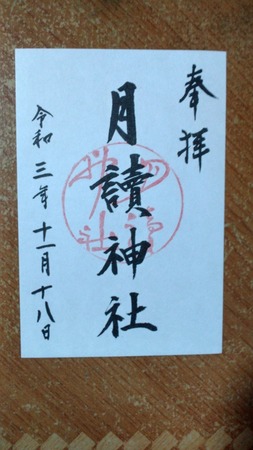 奉拝
月讀神社
令和三年十一月十八日